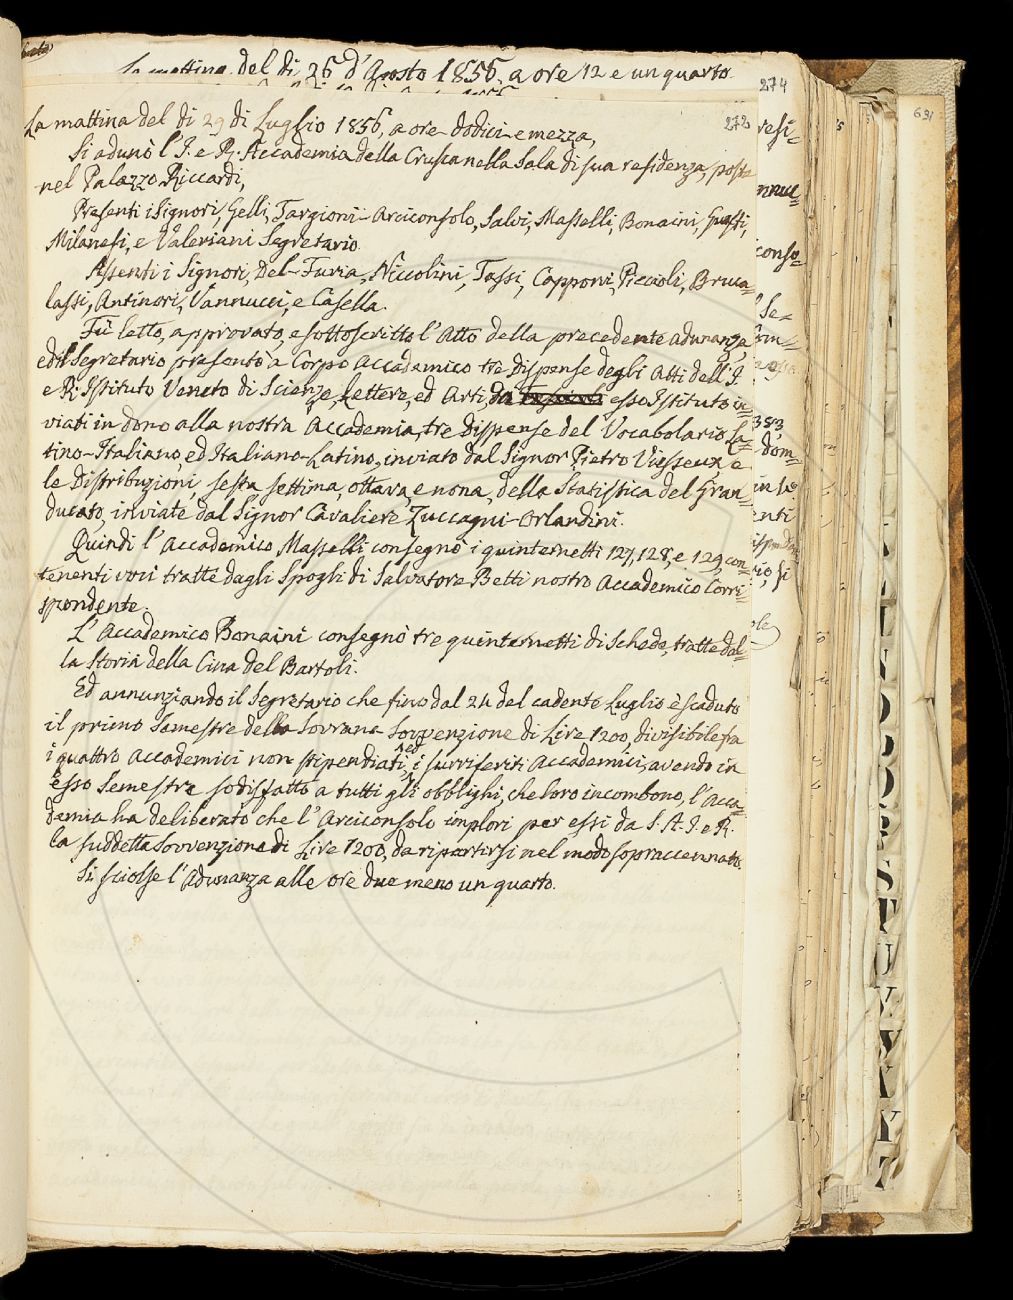 La mattina del di 26 d'Agosto 1856, a ore 12 e un quarto.
274
272
La mattina del di 29 di Luglio 1856, a ore dodici e mezza,
Si adunò l'I. e R. Accademia della Crusca nella Sala di sua residenza, posta
nel Palazzo Riccardi,
Presenti i Signori, Gelli, Targioni-Arciconsolo, Salvi, Masselli, Bonaini, Guasti,
Milanesi, e Valeriani Segretario.
Assenti i Signori, Del-Furia, Niccolini, Tassi, Capponi, Piccioli, Bruca-
lassi, Antinori, Vannucci, e Casella.
Fù letto, approvato, e sottoscritto l'Atto della precedente adunanza,
ed il Segretario presentò a Corpo Accademico tre dispense degli Atti dell'I.
e R. Istituto Veneto di Scienze, Lettere, ed Arti, da esso Istituto in-
viati in dono alla nostra Accademia, tre dispense del Vocabolario La-
tino-Italiano, ed Italiano-Latino, inviato dal Signor Pietro Viesseux, e
le Distribuzioni, sesta settima, ottava, e nona, della Statistica del Gran-
ducato, inviate dal Signor Cavaliere Zuccagni-Orlandini.
Quindi l'Accademico Masselli consegnò i quinternetti 127, 128, e 129, con-
tenenti voci tratte dagli Spogli di Salvatore Betti nostro Accademico Corri-
spondente.
L'Accademico Bonaini consegnò tre quinternetti di Schede, tratte dal-
la Storia della Cina del Bartoli.
Ed annunziando il Segretario che fino dal 24 del cadente Luglio è scaduto
il primo Semestre della Sovrana Sovvenzione di Lire 1200, divisibile fra
i quattro Accademici non stipendiati, ed i surriferiti Accademici, avendo in
esso Semestre sodisfatto a tutti gli obblighi, che loro incombono, l'Acca-
demia ha deliberato che l'Arciconsolo implori per essi da S. A. I. e R.
la suddetta Sovvenzione di Lire 1200, da ripartirsi nel modo sopraccennato.
Si sciolse l'Adunanza alle ore due meno un quarto.
S
T
U
V
X
Y